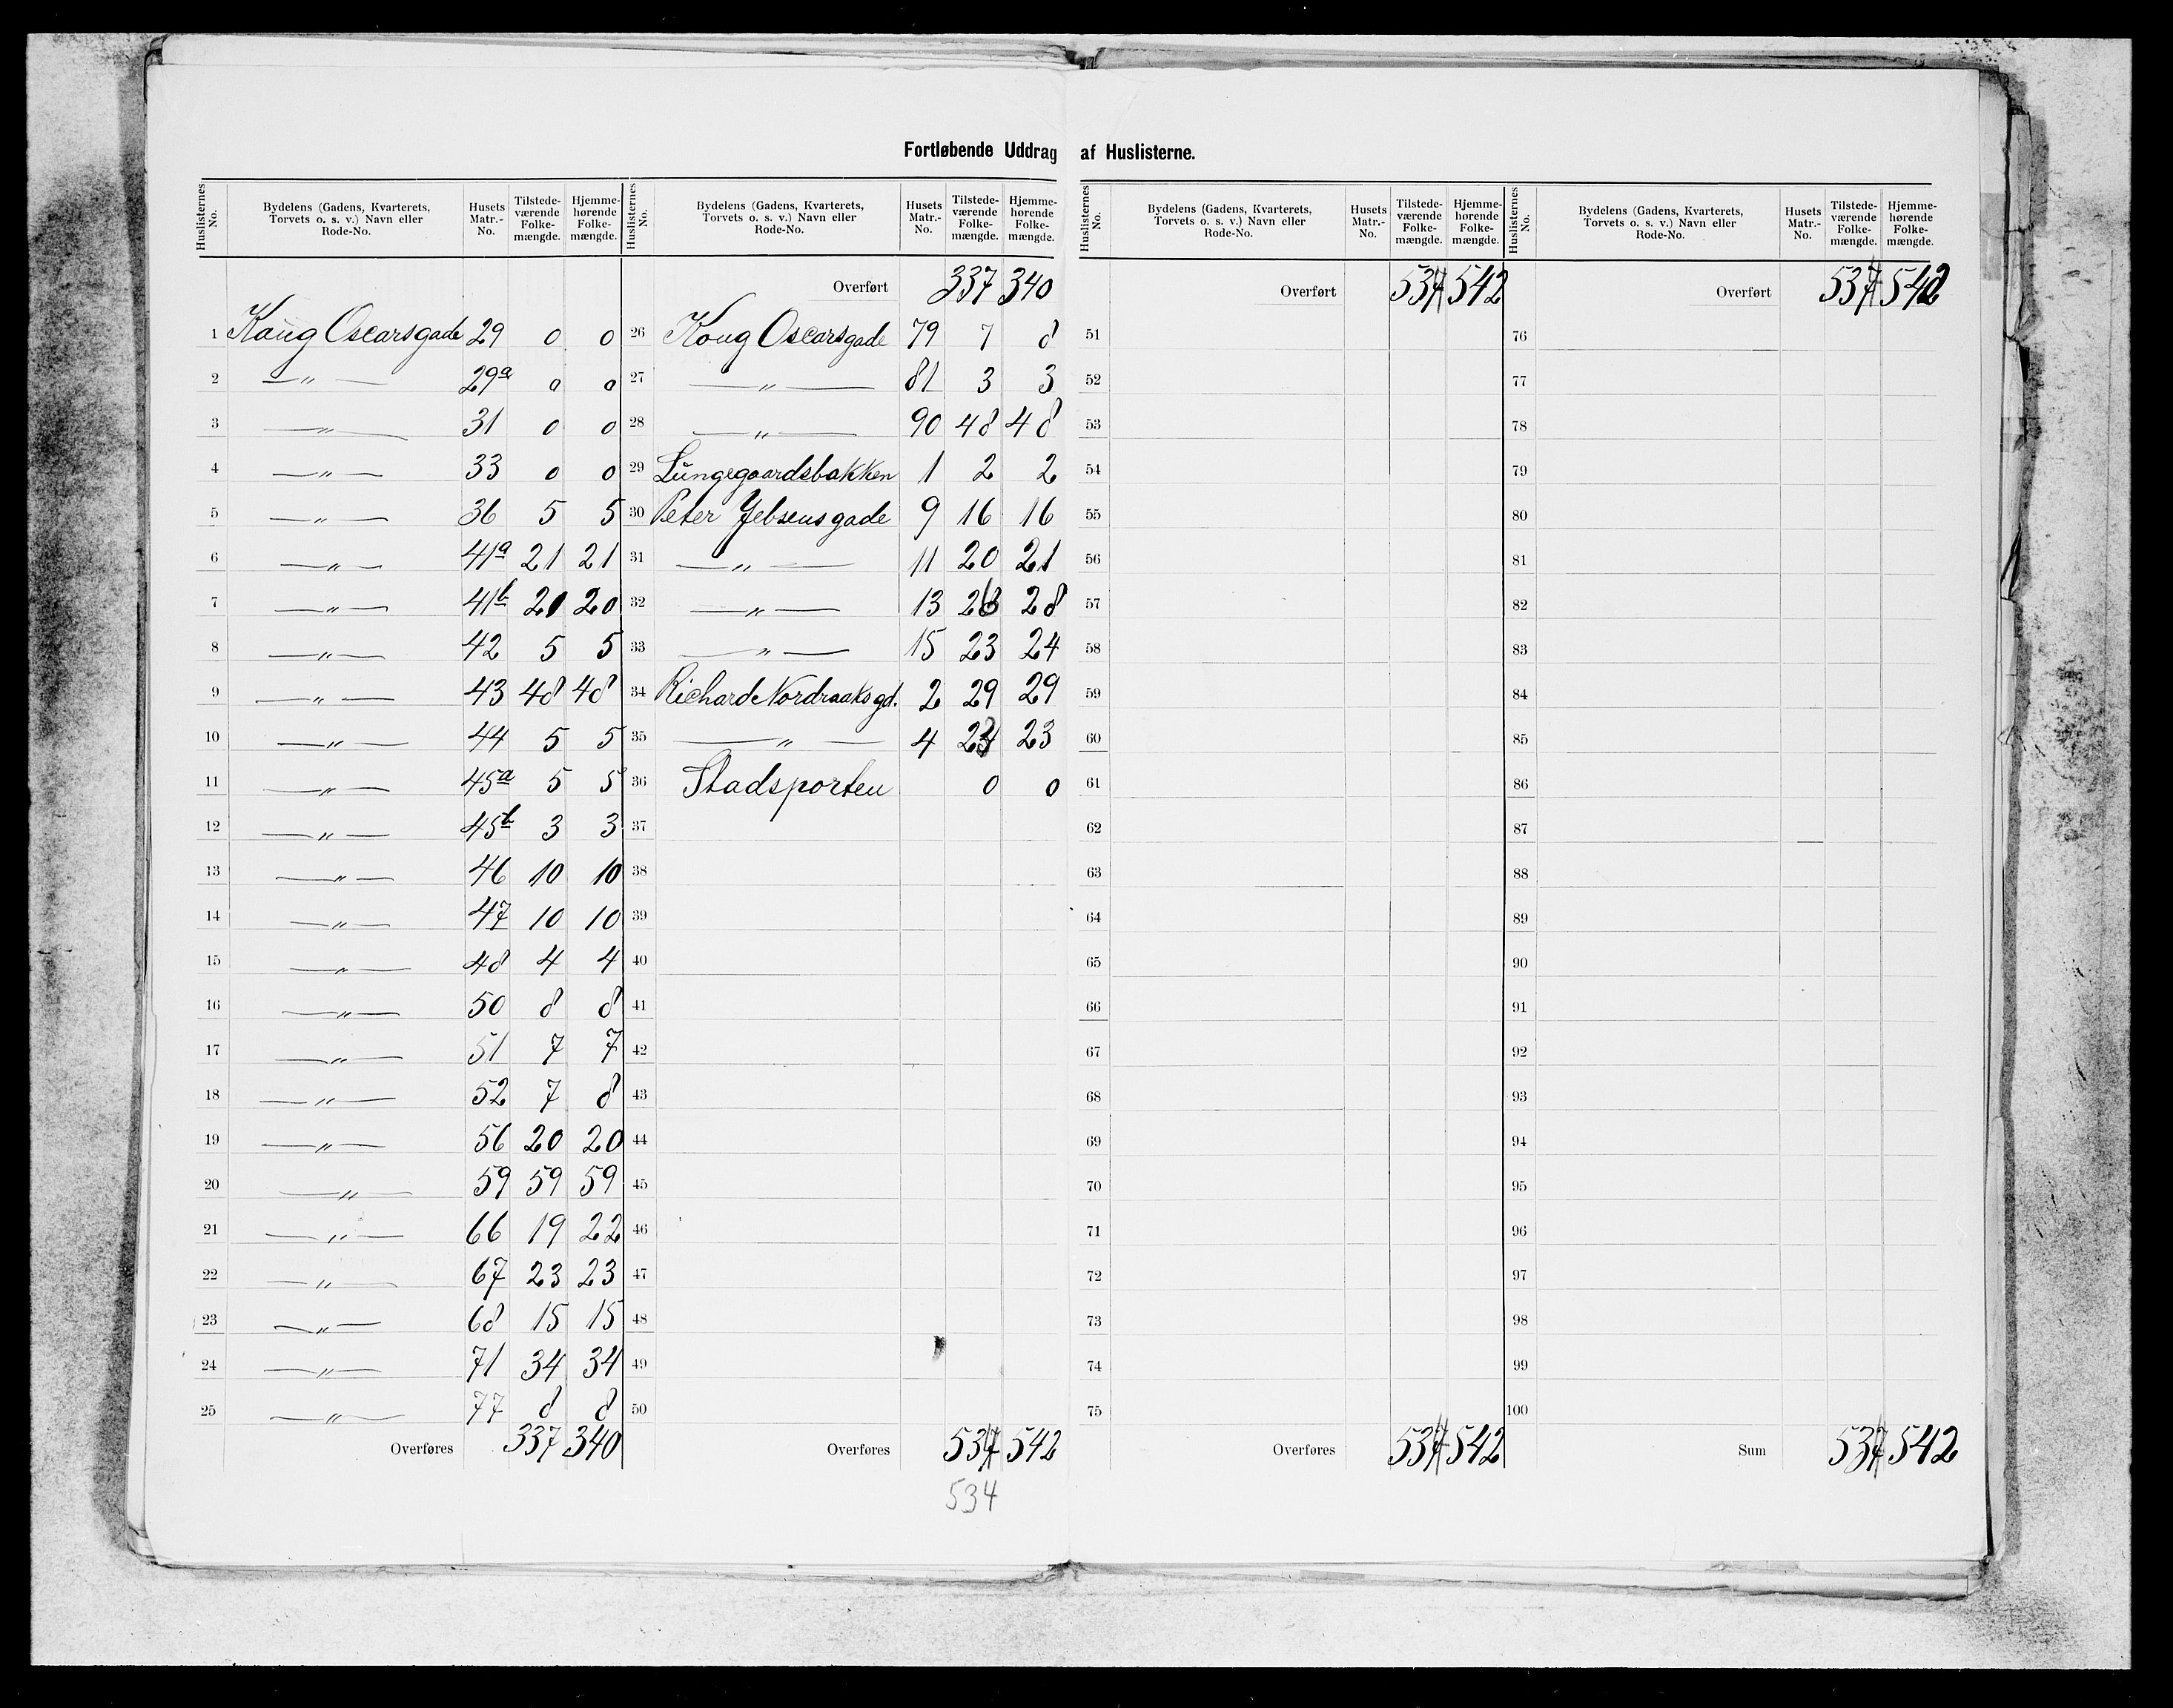 Fortløbende Uddrag af Huslisterne.
Huslisternes No. Bydelens (Gadens, Kvarterets, Torvets o. s. v.) Navn eller Rode-No. Husets Matr.-No. Tilstede-værende Folke-mængde. Hjemme-hørende Folke-mængde.
1 Kong Oscarsgade 29 0 0
2 —„— 29a 0 0
3 —„— 31 0 0
4 —„— 33 0 0
5 —„— 36 5 5
6 —„— 41a 21 21
7 —„— 41b 20 20
8 —„— 42 5 5
9 —„— 43 48 48
10 —„— 44 5 5
11 —„— 45a 5 5
12 —„— 45b 3 3
13 —„— 46 10 10
14 —„— 47 10 10
15 —„— 48 4 4
16 —„— 50 8 8
17 —„— 51 7 7
18 —„— 52 7 8
19 —„— 56 20 20
20 —„— 59 59 59
21 —„— 66 19 22
22 —„— 67 23 23
23 —„— 68 15 15
24 —„— 71 34 34
25 —„— 77 8 8
Overføres 337 340
Huslisternes No. Bydelens (Gadens, Kvarterets, Torvets o. s. v.) Navn eller Rode-No. Husets Matr.-No. Tilstede-værende Folke-mængde. Hjemme-hørende Folke-mængde.
Overført 337 340
26 Kong Oscarsgade 79 7 8
27 —„— 81 3 3
28 —„— 90 48 48
29 Lungegaardsbakken 1 2 2
30 Peter Jebsensgade 9 16 16
31 —„— 11 20 21
32 —„— 13 28
33 —„— 15 23 24
34 Richard Nordraaksgd. 2 29 29
35 —„— 4 23
36 Stadsporten 0 0
37
38
39
40
41
42
43
44
45
46
47
48
49
50
Overføres 537 542
534
Huslisternes No. Bydelens (Gadens, Kvarterets, Torvets o. s. v.) Navn eller Rode-No. Husets Matr.-No. Tilstede-værende Folke-mængde. Hjemme-hørende Folke-mængde.
Overført 537 542
51
52
53
54
55
56
57
58
59
60
61
62
63
64
65
66
67
68
69
70
71
72
73
74
75
Overføres 537 542
Huslisternes No. Bydelens (Gadens, Kvarterets, Torvets o. s. v.) Navn eller Rode-No. Husets Matr.-No. Tilstede-værende Folke-mængde. Hjemme-hørende Folke-mængde.
Overført 537 542
76
77
78
79
80
81
82
83
84
85
86
87
88
89
90
91
92
93
94
95
96
97
98
99
100
Sum 537 542